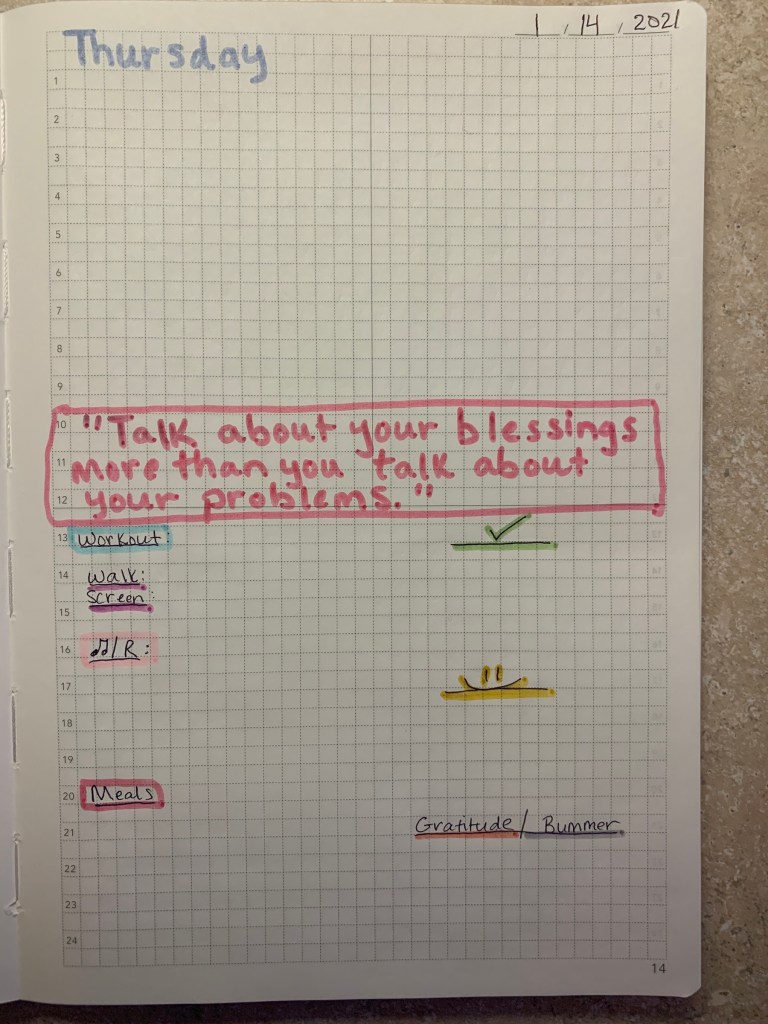 1 , 14 , 2021
Thursday
1
2
3
4
5
6
7
8
9
10
"Talk about your blessings
11
more than you talk about
12
your problems."
13
Workout:
14
Walk:
Screen:
15
16
♫/R:
17
18
19
20
Meals
21
Gratitude/Bummer
22
23
24
14